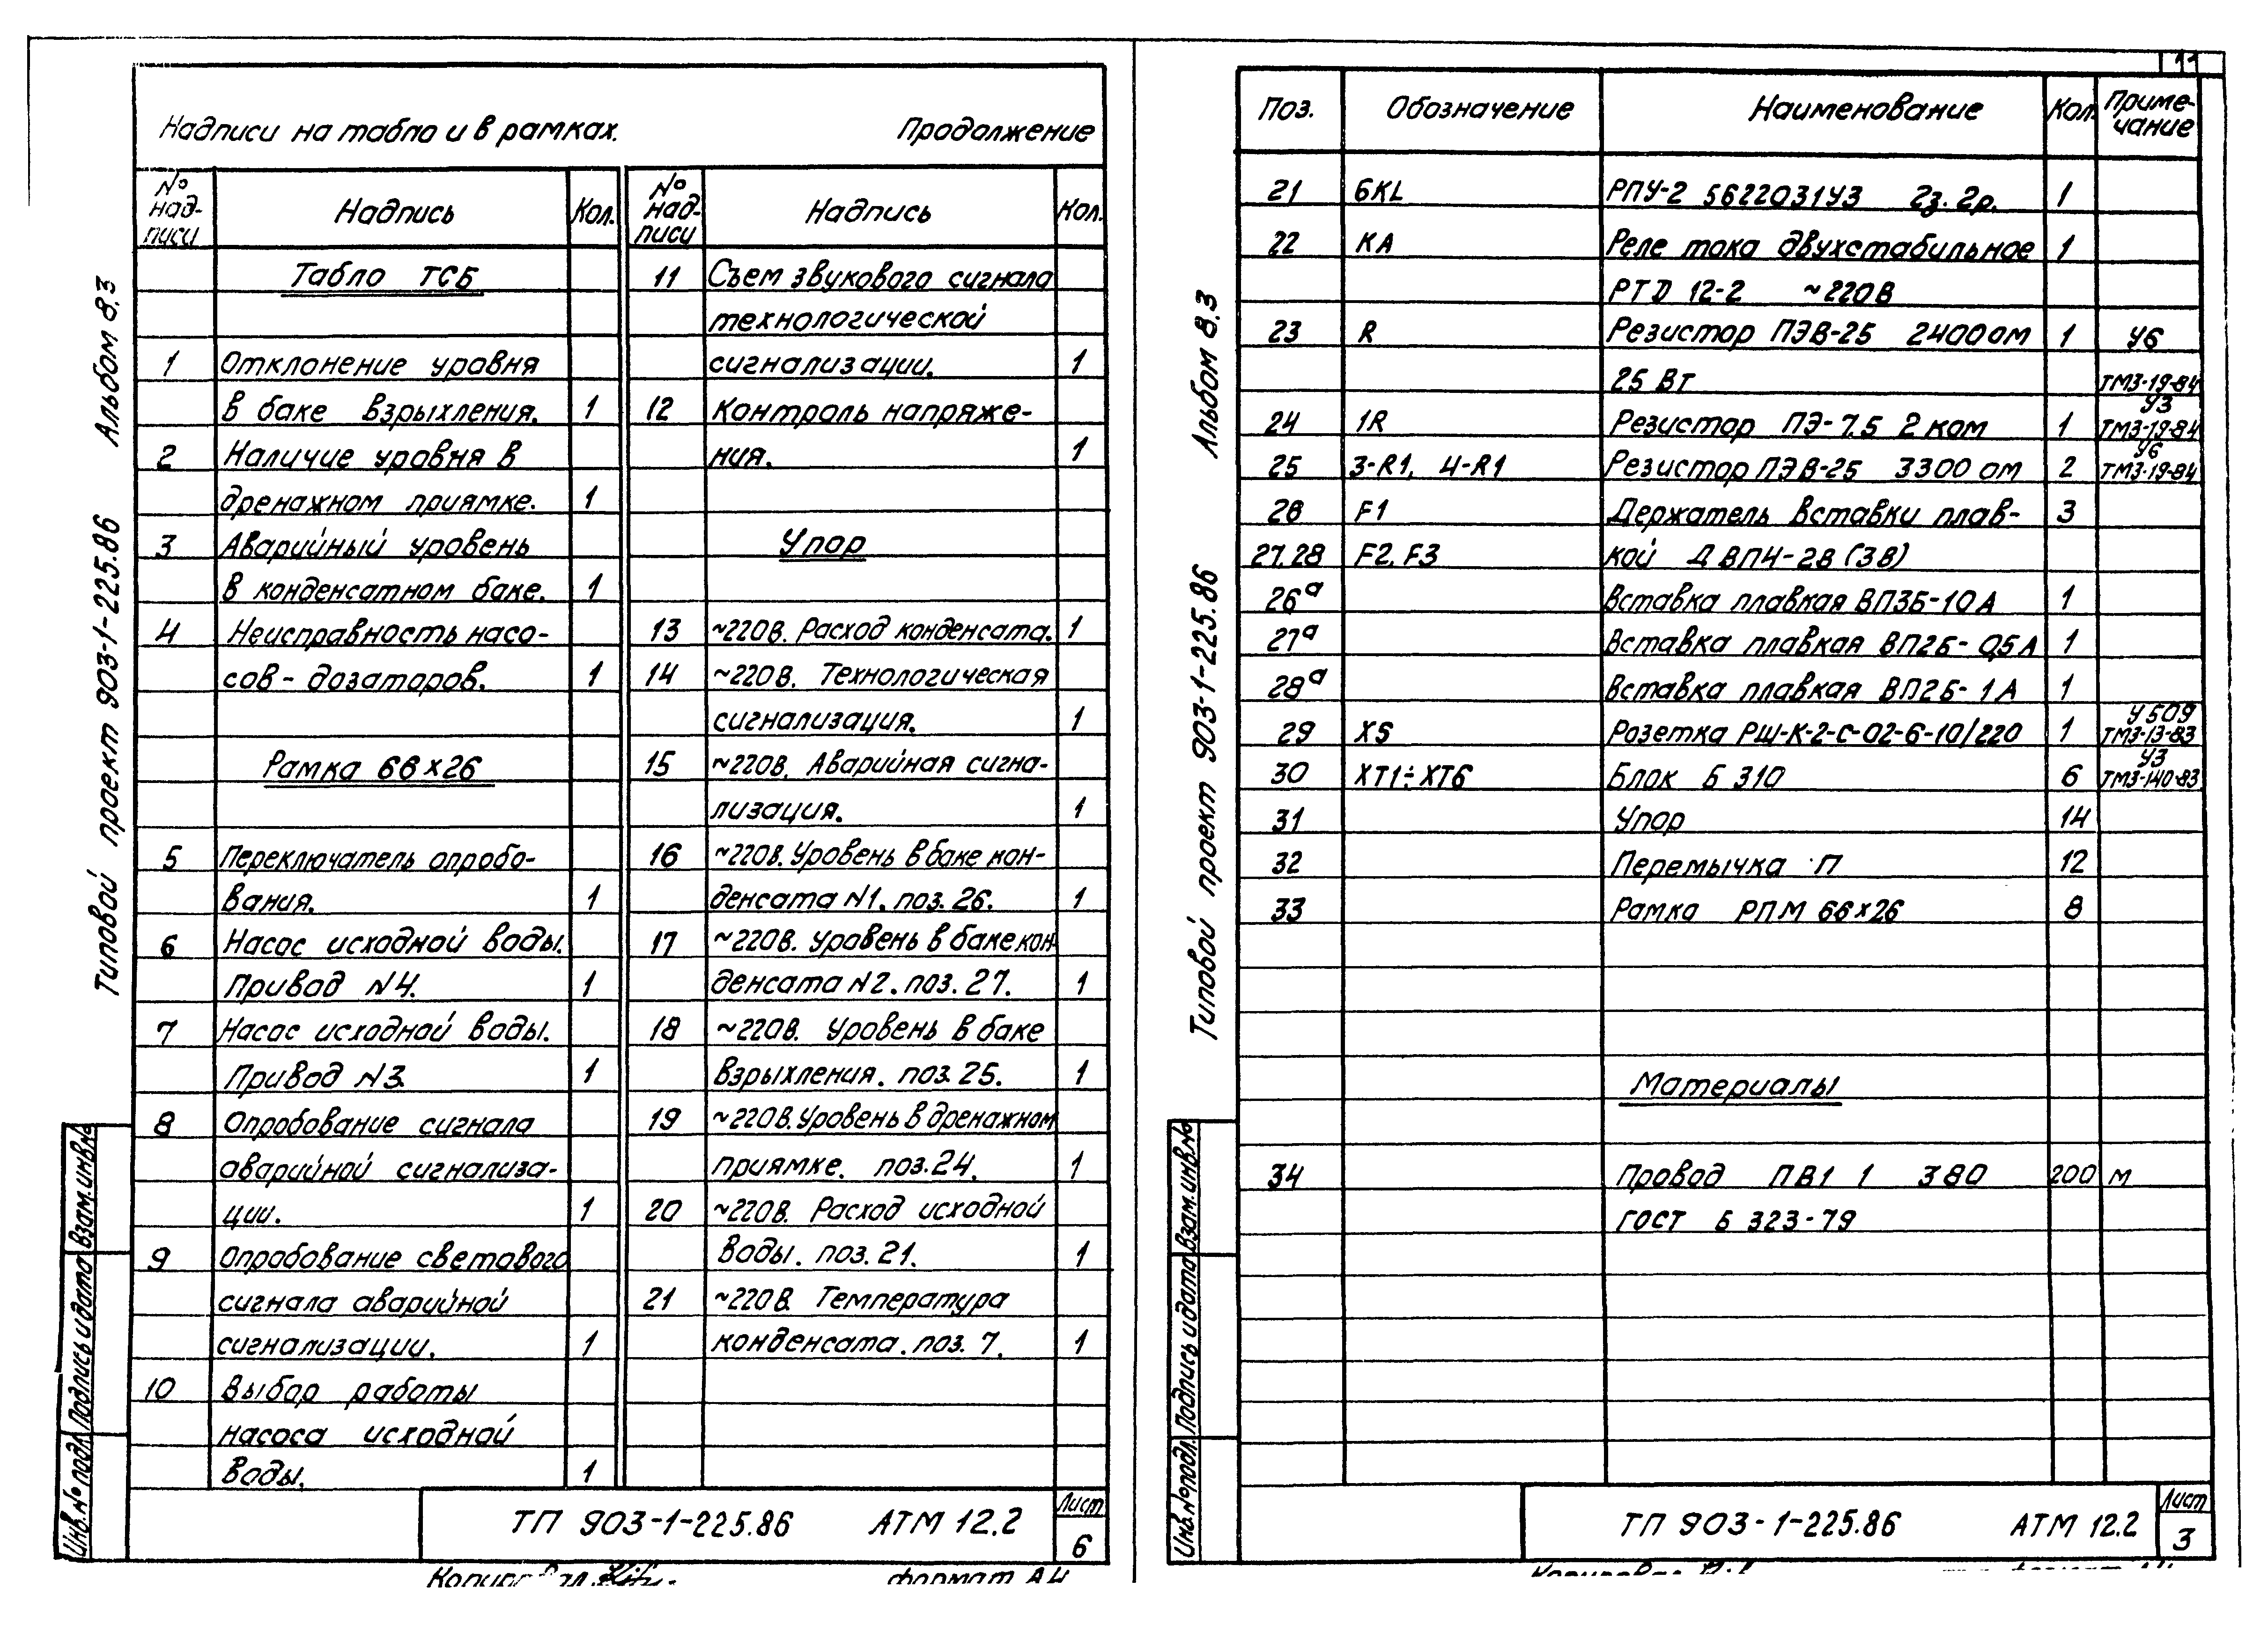 Надписи на табло и в рамках. Продолжение
№ над-писи Надпись Кол.
Табло ТСБ
1 Отклонение уровня
в баке взрыхления. 1
2 Наличие уровня в
дренажном приямке. 1
3 Аварийный уровень
в конденсатном баке. 1
4 Неисправность насо-
сов-дозаторов. 1
Рамка 66х26
5 Переключатель опробо-
вания. 1
6 Насос исходной воды.
Привод N4. 1
7 Насос исходной воды.
Привод N3. 1
8 Опробование сигнала
аварийной сигнализа-
ции. 1
9 Опробование светового
сигнала аварийной
сигнализации. 1
10 Выбор работы
насоса исходной
воды. 1
№ над-писи Надпись Кол.
11 Съем звукового сигнала
технологической
сигнализации. 1
12 Контроль напряже-
ния. 1
Упор
13 ~220В. Расход конденсата. 1
14 ~220В. Технологическая
сигнализация. 1
15 ~220В. Аварийная сигна-
лизация. 1
16 ~220В. Уровень в баке кон-
денсата N1. поз. 26. 1
17 ~220В. Уровень в баке кон-
денсата N2. поз. 27. 1
18 ~220В. Уровень в баке
взрыхления. поз. 25. 1
19 ~220В. Уровень в дренажном
приямке. поз. 24. 1
20 ~220В. Расход исходной
воды. поз. 21. 1
21 ~220В. Температура
конденсата. поз. 7. 1
ТП 903-1-225.86 АТМ 12.2
Лист
6
Типовой проект 903-1-225.86 Альбом 8.3
Взам.инв.№
Подпись и дата
Инв.№ подл.
формат А4
11
Поз. Обозначение Наименование Кол. Приме-чание
21 6KL РПУ-2 5622031У3 2з. 2р. 1
22 КА Реле тока двухстабильное 1
РТД 12-2 ~220В
23 R Резистор ПЭВ-25 2400 ом 1 У6
25 Вт ТМ3-19-84
24 1R Резистор ПЭ-7.5 2 ком 1 У3 ТМ3-19-84
25 3-R1, 4-R1 Резистор ПЭВ-25 3300 ом 2 У6 ТМ3-19-84
26 F1 Держатель вставки плав- 3
27.28 F2, F3 кой ДВП4-2В (3В)
26а Вставка плавкая ВП3Б-10А 1
27а Вставка плавкая ВП2Б-0,5А 1
28а Вставка плавкая ВП2Б-1А 1
29 Х5 Розетка РШ-К-2-С-02-6-10/220 1 У509 ТМ3-13-83
30 ХТ1÷ХТ6 Блок Б 310 6 У3 ТМ3-140-83
31 Упор 14
32 Перемычка П 12
33 Рамка РПМ 66х26 8
Материалы
34 Провод ПВ1 1 380 200 м
ГОСТ 6323-79
ТП 903-1-225.86 АТМ 12.2
Лист
3
Типовой проект 903-1-225.86 Альбом 8.3
Взам.инв.№
Подпись и дата
Инв.№ подл.